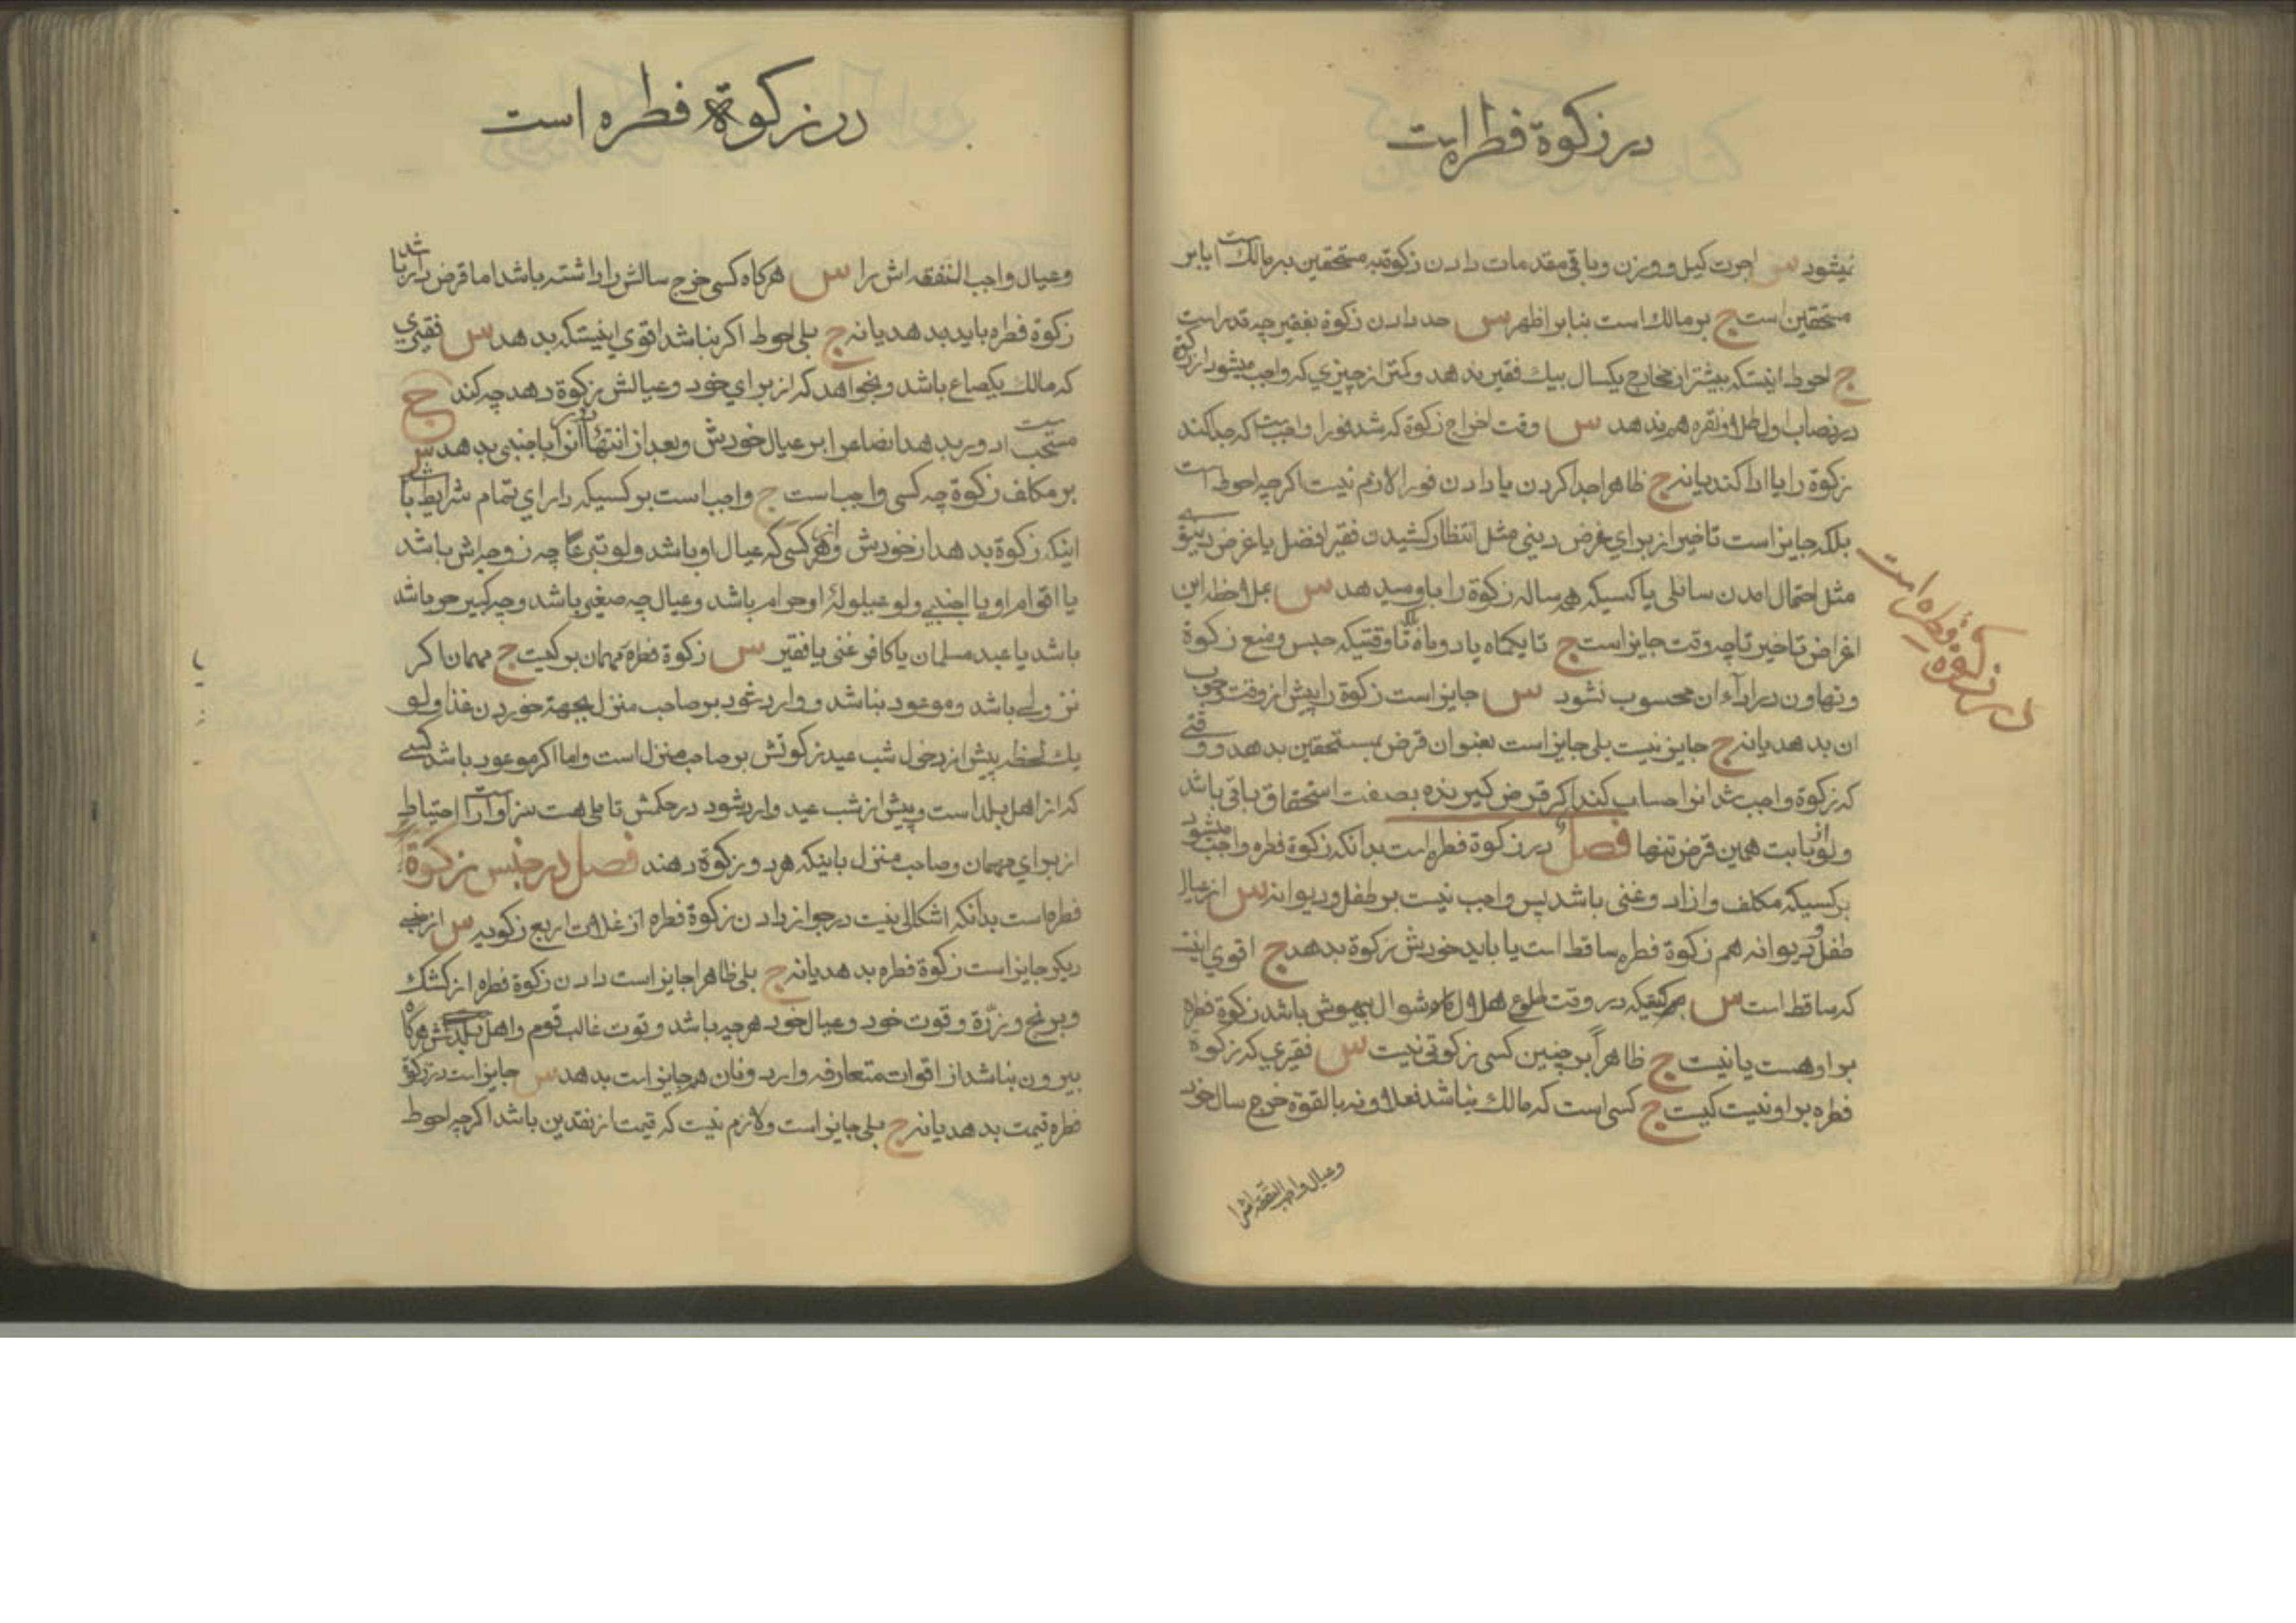 در زکوة فطره است
نمیشود س اجرت کیل و وزن و باقی مقدمات دادن زکوة به مستحقین بر مالک است ایا بر
مستحقین است ج بر مالک است بنابر اظهر س حد دادن زکوة بفقیر چه قدر است
ج احوط اینستکه بیشتر از مخارج یکسال بیک فقیر ندهد و کمتر از چیزی که واجب میشود از زکوة
در نصاب اول طلا و نقره هم ندهد س وقت اخراج زکوة که شد فورا واجبست که جدا کند
زکوة را یا ادا کند یا نه ج ظاهرا جدا کردن یا دادن فورا لازم نیست اکرچه احوط است
بلکه جایز است تاخیر از برای غرض دینی مثل انتظار کشیدن فقیر افضل یا غرض دنیوی
مثل احتمال امدن سائلی یا کسیکه همه ساله زکوة را باو میدهد س بملاحظه این
اغراض تاخیر تا چه وقت جایز است ج تا یکماه یا دو ماه تا وقتیکه حبس و منع زکوة
و تهاون در اداء ان محسوب نشود س جایز است زکوة را پیش از وقت وجوب
ان بدهد یا نه ج جایز نیست بلی جایز است بعنوان قرض بمستحقین بدهد و وقتی
که زکوة واجب شد انرا حساب کند اکر قرض کیرنده بصفت استحقاق باقی باشد
ولو از بابت همین قرض تنها فصل در زکوة فطره است بدانکه زکوة فطره واجب میشود
بر کسیکه مکلف و ازاد و غنی باشد پس واجب نیست بر طفل و دیوانه س از عیال
طفل و دیوانه هم زکوة فطره ساقط است یا باید خودش زکوة بدهد ج اقوی اینست
که ساقط است س هر کسیکه در وقت طلوع هلال ماه شوال بیهوش باشد زکوة فطره
بر او هست یا نیست ج ظاهراً بر چنین کسی زکوتی نیست س فقیری که زکوة
فطره بر او نیست کیست ج کسی است که مالک نباشد نه فعلا و نه بالقوة خرج سال خود
وعیال واجب النفقه اش را
در زکوة فطره است
در زکوة فطره است
وعیال واجب النفقه اش را س هرکاه کسی خرج سالش را داشته باشد اما قرض دار باشد
زکوة فطره باید بدهد یا نه ج بلی احوط اکر نباشد اقوی اینستکه بدهد س فقیری
که مالک یکصاع باشد و بخواهد که از برای خود و عیالش زکوة دهد چه کند ج
مستحب است دور بدهد انصاع را بر عیال خودش و بعد از انتهاء دور انرا باجنبی بدهد س
بر مکلف زکوة چه کسی واجب است ج واجب است بر کسیکه دارای تمام شرایط باشد
اینکه زکوة بدهد از خودش و از هر کسی که عیال او باشد ولو تبرعا چه زوجه اش باشد
یا اقوام او یا اجنبی ولو عیلولهٔ او حرام باشد و عیال چه صغیر باشد و چه کبیر حر باشد
باشد یا عبد مسلمان یا کافر غنی یا فقیر س زکوة فطره مهمان بر کیست ج مهمان اکر
نزولی باشد و موعود نباشد و وارد شود بر صاحب منزل بجهة خوردن غذا ولو
یک لحظه پیش از دخول شب عید زکوتش بر صاحب منزل است و اما اکر موعود باشد کسی
که از اهل بلد است و پیش از شب عید وارد شود در حکمش تاملی هست سزاوار است احتیاط
از برای مهمان و صاحب منزل باینکه هر دو زکوة دهند فصل در جنس زکوة
فطره است بدانکه اشکالی نیست در جواز دادن زکوة فطره از غلات اربع زکویه س از جنس
دیکر جایز است زکوة فطره بدهد یا نه ج بلی ظاهرا جایز است دادن زکوة فطره از کشک
و برنج و ذرّة و قوت خود و عیال خود هرچه باشد و قوت غالب قوم و اهل بلدش هرکاه
بیرون نباشد از اقوات متعارفه و ارد و نان هم جایز است بدهد س جایز است در زکوة
فطره قیمت بدهد یا نه ج بلی جایز است و لازم نیست که قیمت از نقدین باشد اکرچه احوط